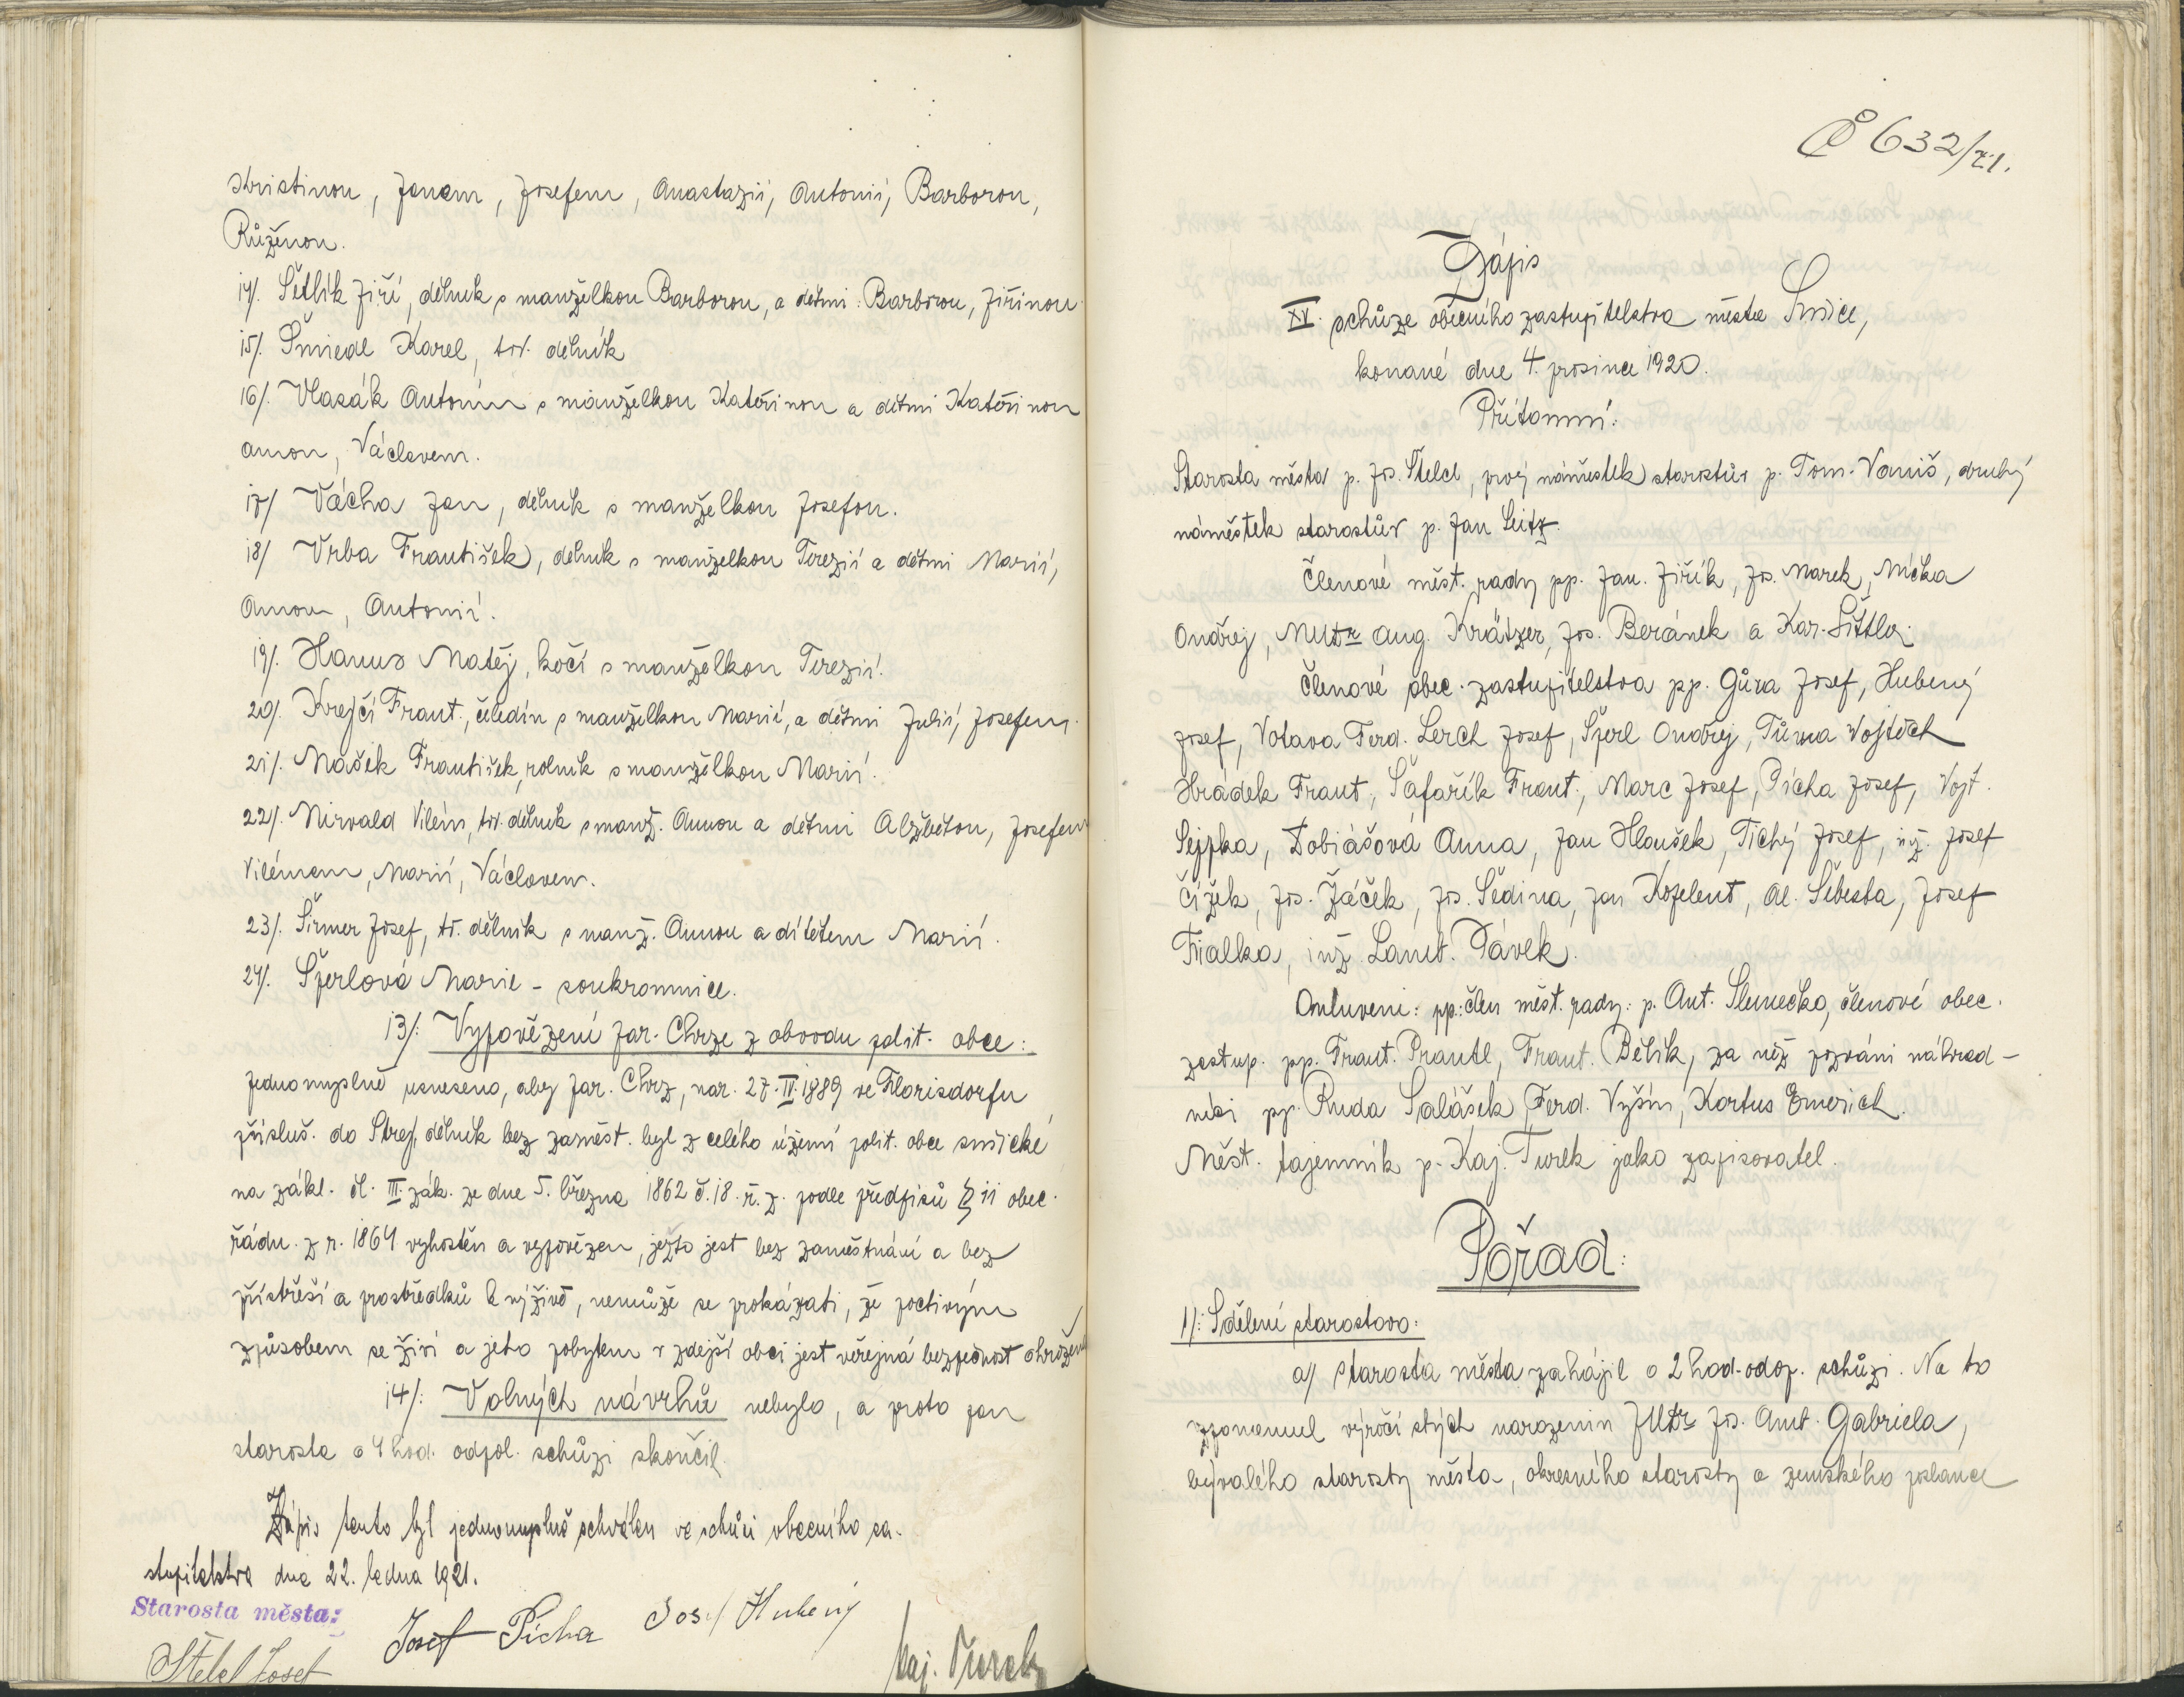 Kristinou, Janem, Josefem, Anastazií, Antonií, Barborou,
Růženou.
14/. Šetlík Jiří, dělník s manželkou Barborou, a dětmi: Barborou, Jiřinou
15/. Šmiedl Karel, tov. dělník
16/. Vlasák Antonín s manželkou Kateřinou a dětmi Kateřinou
Annou, Václavem.
17/ Vácha Jan, dělník s manželkou Josefou.
18/ Vrba František, dělník s manželkou Terezií a dětmi Marií,
Annou, Antonií.
19/. Hanus Matěj, kočí s manželkou Terezií.
20/. Krejčí Frant., čeledín s manželkou Marií, a dětmi Julií, Josefem.
21/. Mašek František, rolník s manželkou Marií.
22/. Nirvald Vilém, tov. dělník s manž. Annou a dětmi Alžbětou, Josefem
Vilémem, Marií, Václavem.
23/. Širmer Josef, tov. dělník s manž. Annou a dítětem Marií.
24/. Šperlová Marie - soukromnice.
13/: Vypovězení Jar. Chrze z obvodu polit. obce:
Jednomyslně usneseno, aby Jar. Chrz, nar. 27. IV. 1889 ve Florisdorfu
přísluš. do Strej, dělník bez zaměst. byl z celého území polit. obce sušické
na zákl. čl. III. zák. ze dne 5. března 1862 č. 18. ř. z. podle předpisů § 11 obec.
řádu. z r. 1864 vyhostěn a vypovězen, ježto jest bez zaměstnání a bez
přístřeší a prostředků k výživě, nemůže se prokázati, že poctivým
způsobem se živí a jeho pobytem v zdejší obci jest veřejná bezpečnost ohrožena
14/: Volných návrhů nebylo, a proto pan
starosta o 4 hod. odpol. schůzi skončil.
Zápis tento byl jednomyslně schválen ve schůzi obecního za-
stupitelstva dne 22. ledna 1921.
Starosta města:
Štelcl Josef
Josef Pícha
Josef Hubený
Kaj. Turek
Č 632/21.
Zápis
XV. schůze obecního zastupitelstva města Sušice,
konané dne 4. prosince 1920.
Přítomni:
Starosta města p. Jos. Štelcl, prvý náměstek starostův p. Tom. Vaniš, druhý
náměstek starostův p. Jan Seitz.
Členové měst. rady pp. Jan. Jiřík, Jos. Marek, Mička
Ondřej, MUDr Aug. Krätzer, Jos. Beránek a Kar. Šittler.
Členové obec. zastupitelstva pp. Gůra Josef, Hubený
Josef, Votava Ferd. Lerch Josef, Šperl Ondřej, Tůma Vojtěch
Hrádek Frant, Šafařík Frant., Marc Josef, Pícha Josef, Vojt.
Sejpka, Tobiášová Anna, Jan Hloušek, Tichý Josef, inž. Josef
Čížek, Jos. Žáček, Jos. Šedina, Jan Kozelent, Al. Šebesta, Josef
Fialka, inž. Lamb. Pávek.
Omluveni: pp.: člen měst. rady: p. Ant. Slunečko, členové obec.
zastup. pp. Frant. Prantl, Frant. Bělík, za něž pozváni náhrad-
níci pp. Ruda Salášek, Ferd. Vyšín, Kortus Emerich.
Měst. tajemník p. Kaj. Turek jako zapisovatel.
Pořad:
1/: Sdělení starostovo:
a/ starosta města zahájil o 2 hod. odop. schůzi. Na to
vzpomenul výročí stých narozenin JUDr Jos. Ant. Gabriela,
bývalého starosty města, okresního starosty a zemského poslance